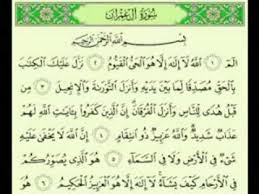 سُورَةُ آلِ عِمْرَانَ
بِسْمِ اللَّهِ الرَّحْمَٰنِ الرَّحِيمِ
الٓمٓ ١ اللَّهُ لَا إِلَٰهَ إِلَّا هُوَ الْحَيُّ الْقَيُّومُ ٢ نَزَّلَ عَلَيْكَ الْكِتَابَ
بِالْحَقِّ مُصَدِّقًا لِّمَا بَيْنَ يَدَيْهِ وَأَنزَلَ التَّوْرَاةَ وَالْإِنجِيلَ ٣ مِن
قَبْلُ هُدًى لِّلنَّاسِ وَأَنزَلَ الْفُرْقَانَ إِنَّ الَّذِينَ كَفَرُوا بِآيَاتِ اللَّهِ لَهُمْ
عَذَابٌ شَدِيدٌ وَاللَّهُ عَزِيزٌ ذُو انتِقَامٍ ٤ إِنَّ اللَّهَ لَا يَخْفَىٰ عَلَيْهِ
شَيْءٌ فِي الْأَرْضِ وَلَا فِي السَّمَاءِ ٥ هُوَ الَّذِي يُصَوِّرُكُمْ
فِي الْأَرْحَامِ كَيْفَ يَشَاءُ لَا إِلَٰهَ إِلَّا هُوَ الْعَزِيزُ الْحَكِيمُ ٦ هُوَ